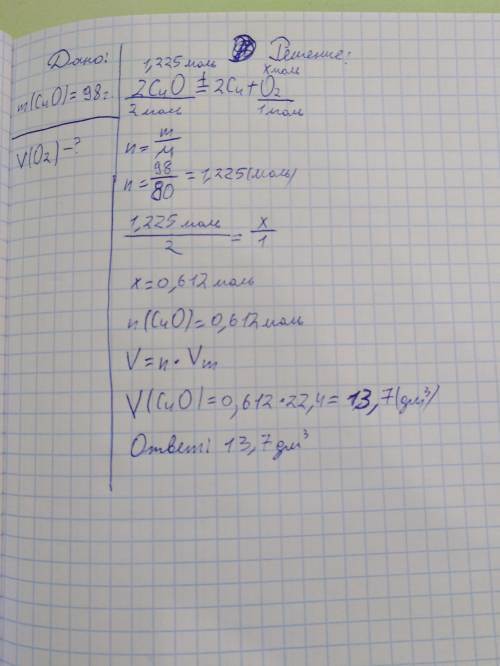 Дано:
m(CuO)=98г
V(O₂)-?
Решение:
1,225 моль x моль
2CuO t= 2Cu + O₂
2 моль 1 моль
n = m/M
n = 98/80 = 1,225(моль)
1,225 моль/2 = x/1
x=0,612 моль
n(CuO)=0,612 моль
V=n·Vm
V(CuO)=0,612·22,4= 13,7(дм³)
Ответ: 13,7 дм³